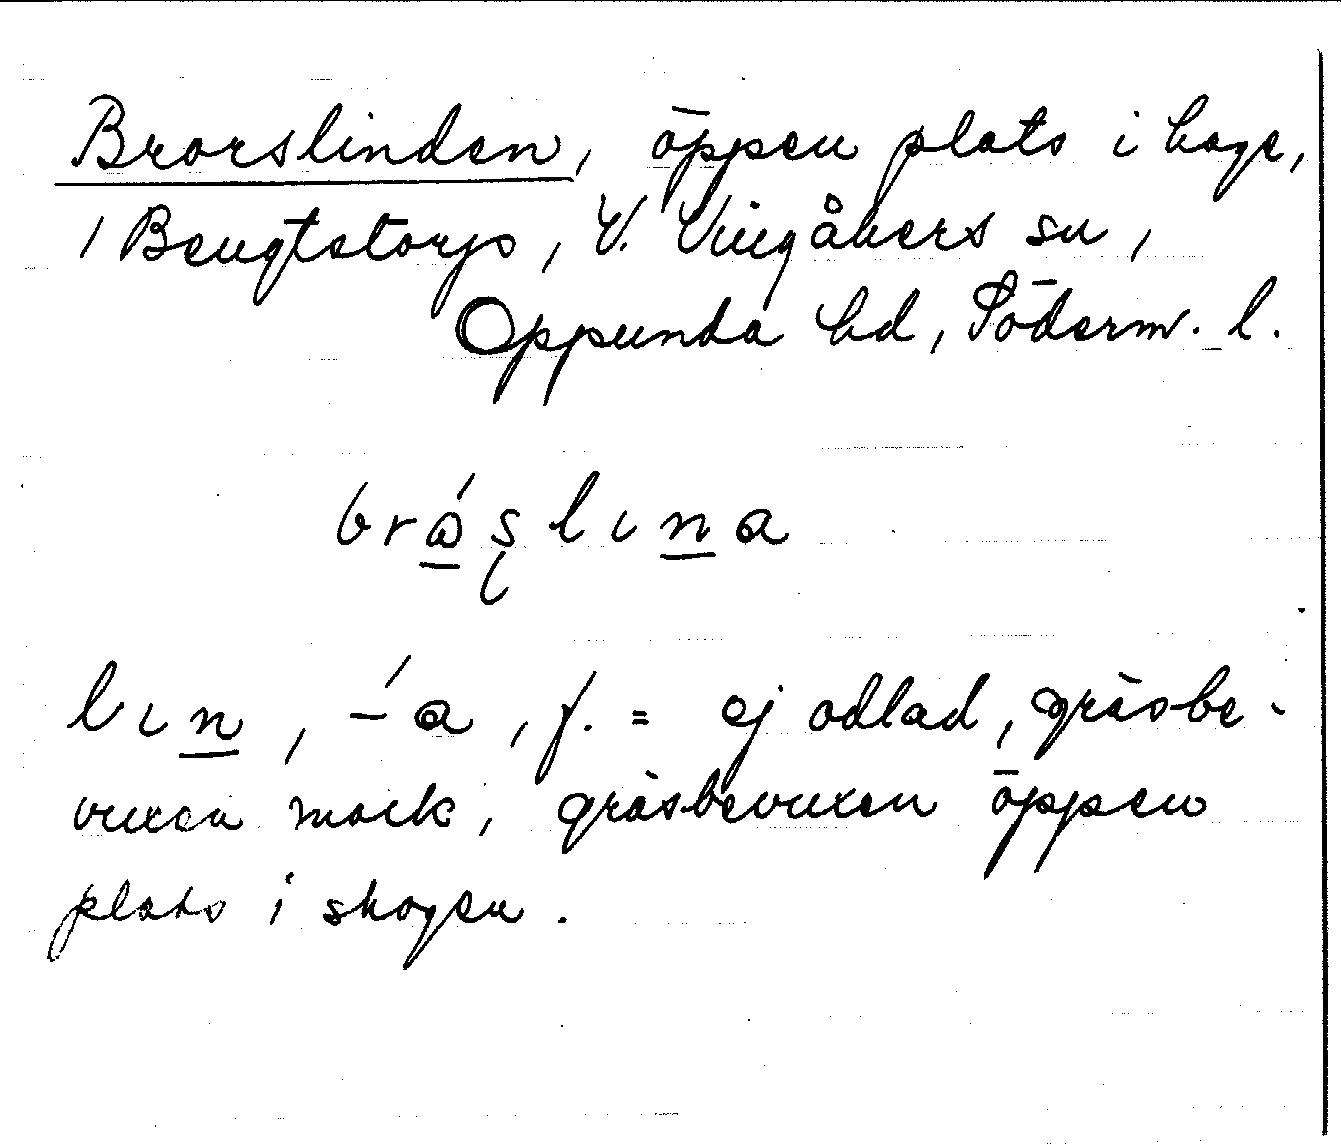 Brorslinden, öppen plats i hage,
/ Bengtstorp, V. Vingåkers sn,
Oppunda hd, Söderm. l.
brǻslɩna
lɩn, –́a, f. = ej odlad, gräsbe-
vuxen mark, gräsbevuxen öppen
plats i skogen.